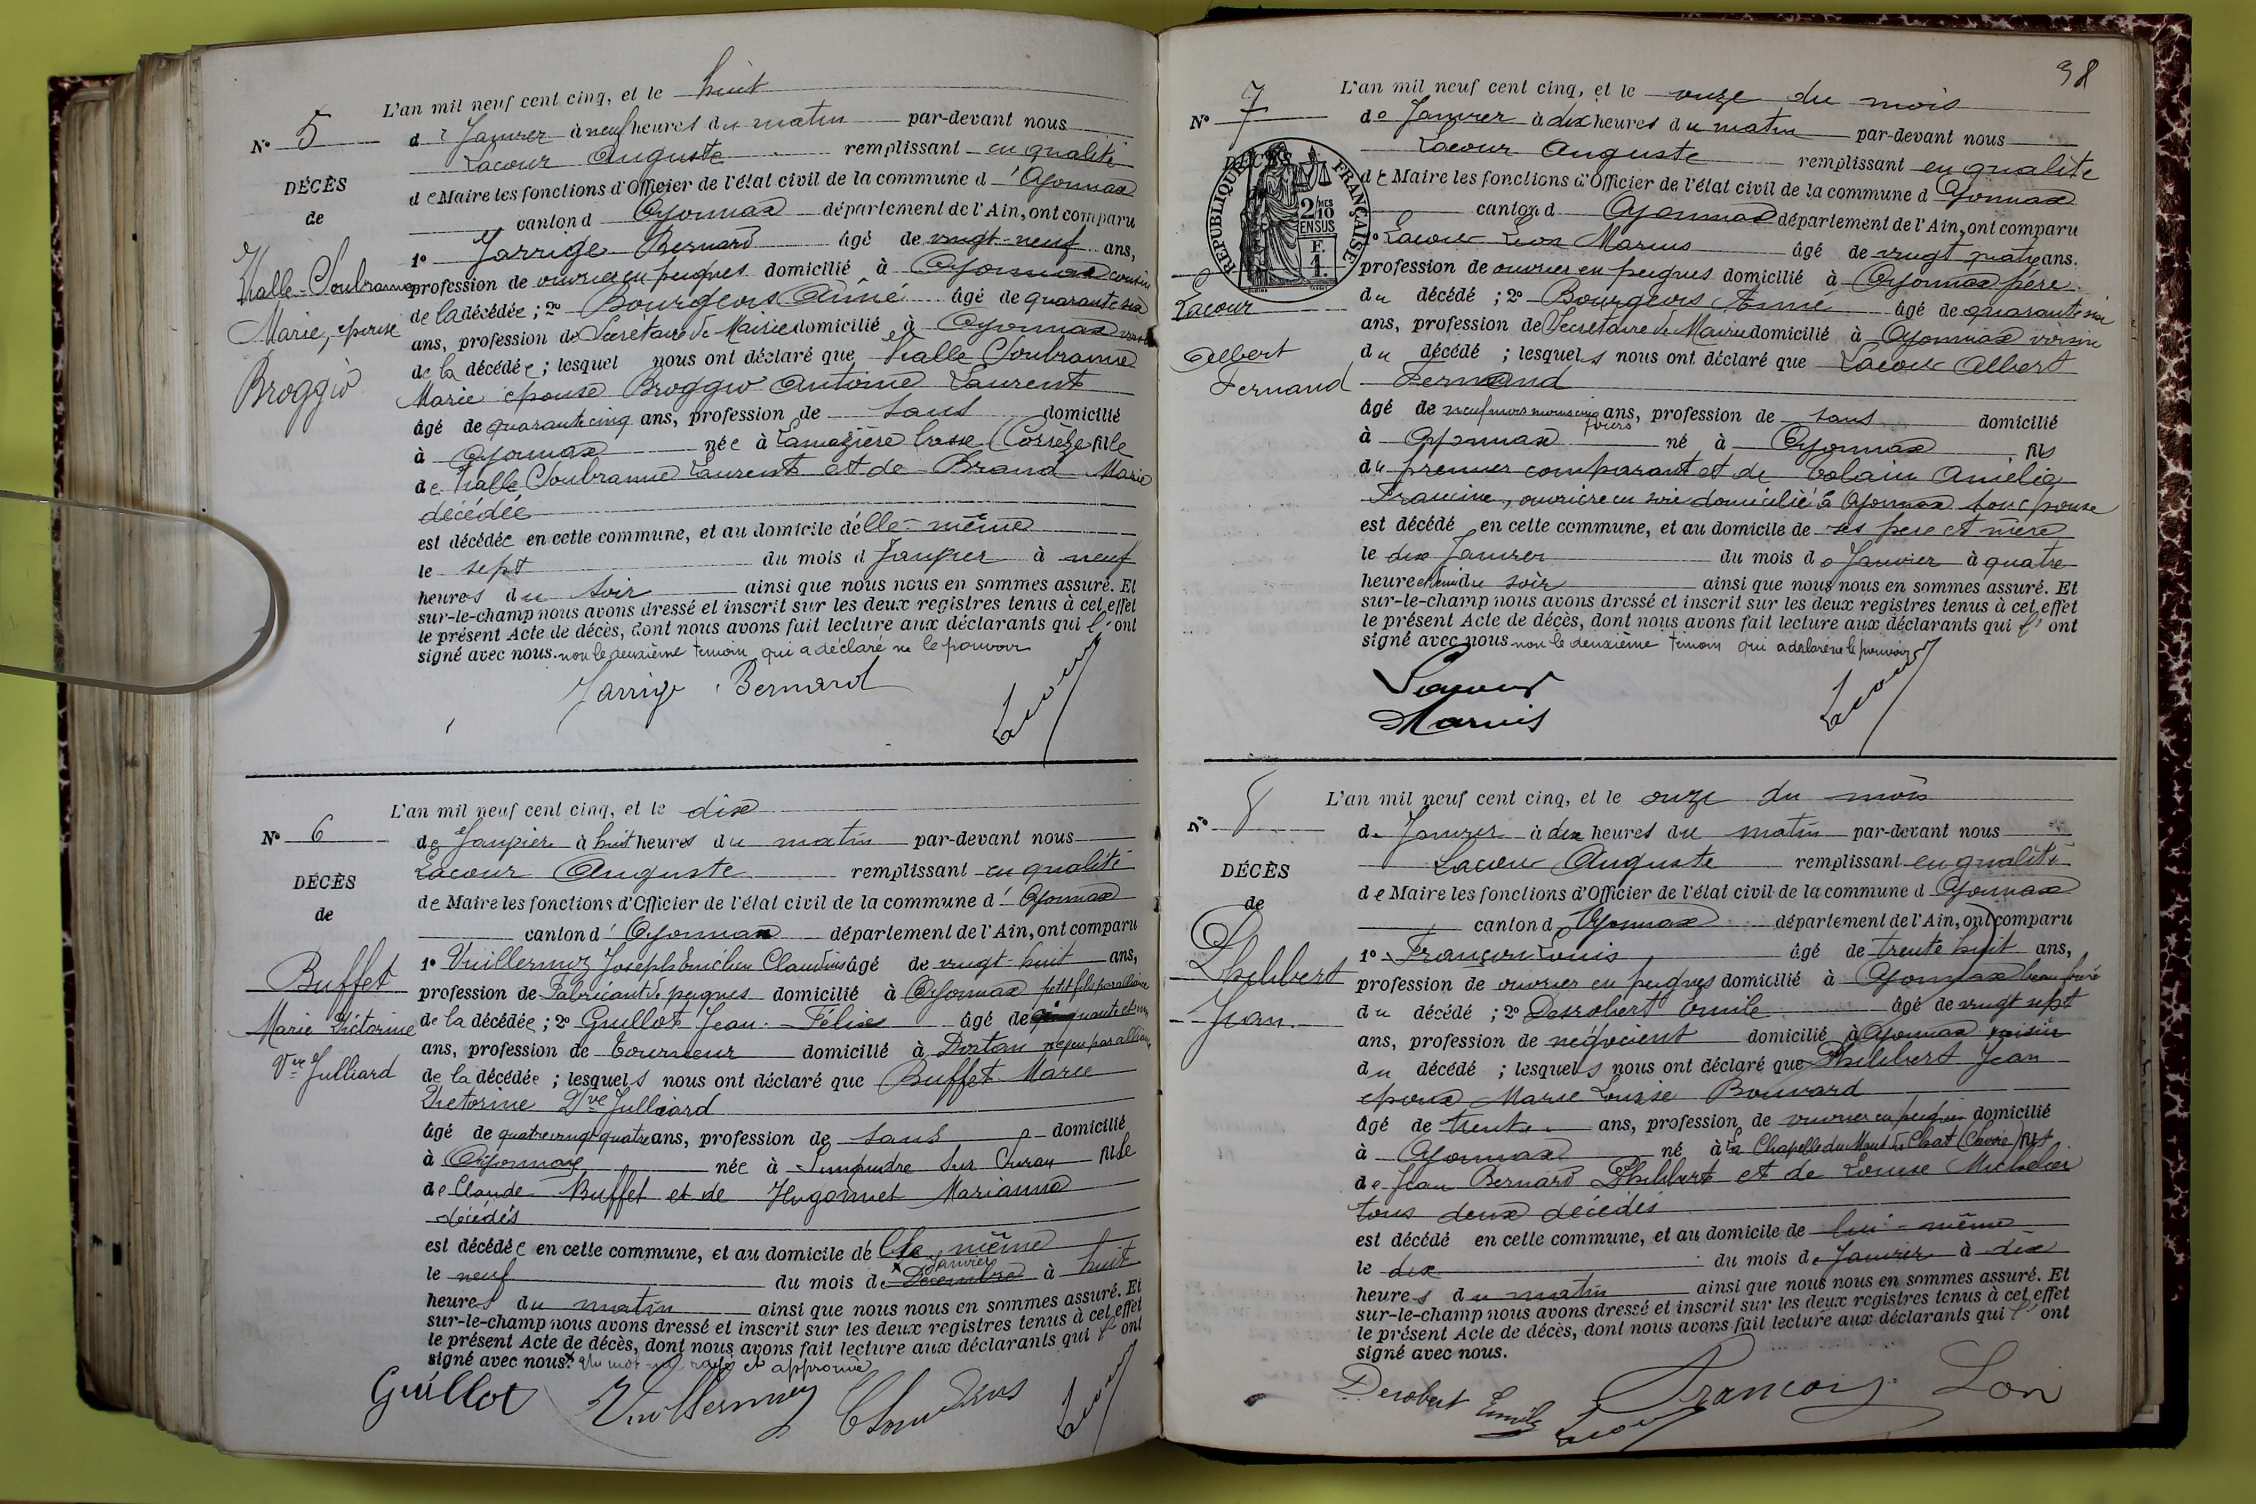 L'an mil neuf cent cinq, et le huit
N° 5
de Janvier à neuf heures du matin par-devant nous
Lacour Auguste remplissant en qualité
DÉCÈS
de Maire les fonctions d'Officier de l'état civil de la commune d'Oyonnax
de
canton d Oyonnax département de l'Ain, ont comparu
1° Jarrige Bernard âgé de vingt-neuf ans,
Halle-Soubranne
profession de ouvrier en peignes domicilié à Oyonnax cousin
de la décédée ; 2° Bourgeois Aimé âgé de quarante six
Marie, épouse
ans, profession de Secrétaire de Mairie domicilié à Oyonnax
Broggio
de la décédée ; lesquels nous ont déclaré que Halle Soubranne
Marie épouse Broggio Antoine Laurent
âgé de quarante cinq ans, profession de sans domicilié
à Oyonnax née à Lamazière basse (Corrèze) fille
de Halle Soubranne Laurent et de Brand Marie
décédée
est décédée en cette commune, et au domicile d'elle-même
le sept du mois d Janvier à neuf
heures du soir ainsi que nous nous en sommes assuré. Et
sur-le-champ nous avons dressé et inscrit sur les deux registres tenus à cet effet
le présent Acte de décès, dont nous avons fait lecture aux déclarants qui l'ont
signé avec nous. non le deuxième témoin qui a déclaré ne le pouvoir
Jarrige Bernard
Lacour
L'an mil neuf cent cinq, et le dix
N° 6
de Janvier à huit heures du matin par-devant nous
Lacour Auguste remplissant en qualité
DÉCÈS
de Maire les fonctions d'Officier de l'état civil de la commune d'Oyonnax
de
canton d'Oyonnax département de l'Ain, ont comparu
1° Vuillermoz Joseph Emilien Claudius âgé de vingt-huit ans,
Buffet
profession de Fabricant de peignes domicilié à Oyonnax petit fils par alliance
Marie Victorine
de la décédée ; 2° Guillot Jean-Félix âgé de cinquante et un
ans, profession de tourneur domicilié à Dortan neveu par alliance
Vve Julliard
de la décédée ; lesquels nous ont déclaré que Buffet Marie
Victorine Vve Julliard
âgé de quatre vingt quatre ans, profession de sans domicilié
à Oyonnax née à sur Suran fille
de Claude Buffet et de Hugonnet Marianne
décédés
est décédée en cette commune, et au domicile d'elle même
Janvier
le neuf du mois de Décembre à huit
heures du matin ainsi que nous nous en sommes assuré. Et
sur-le-champ nous avons dressé et inscrit sur les deux registres tenus à cet effet
le présent Acte de décès, dont nous avons fait lecture aux déclarants qui l'ont
signé avec nous. Un mot nul rayé et approuvé
Guillot Vuillermoz Claudius Lacour
98
L'an mil neuf cent cinq, et le onze du mois
N° 7
de Janvier à dix heures du matin par-devant nous
Lacour Auguste remplissant en qualité
DÉCÈS
RÉPUBLIQUE FRANÇAISE
2/10 MES
EN SUS
F.
1.
de Maire les fonctions d'Officier de l'état civil de la commune d Oyonnax
canton d Oyonnax département de l'Ain, ont comparu
1° Lacour Léon Marius âgé de vingt quatre ans.
profession de ouvrier en peignes domicilié à Oyonnax père
Lacour
du décédé ; 2° Bourgeois Aimé âgé de quarante six
ans, profession de Secrétaire de Mairie domicilié à Oyonnax voisin
Albert
du décédé ; lesquels nous ont déclaré que Lacour Albert
Fernand
Fernand
âgé de neuf mois moins cinq jours ans, profession de sans domicilié
à Oyonnax né à Oyonnax, fils
du premier comparant et de Volain Amélie
Francine, ouvrière en soie domiciliée à Oyonnax son épouse
est décédé en cette commune, et au domicile de ses père et mère
le dix Janvier du mois de Janvier à quatre
heure et demi du soir ainsi que nous nous en sommes assuré. Et
sur-le-champ nous avons dressé et inscrit sur les deux registres tenus à cet effet
le présent Acte de décès, dont nous avons fait lecture aux déclarants qui l'ont
signé avec nous non le deuxième témoin qui a déclaré ne le pouvoir
Lacour
Marius
Lacour
L'an mil neuf cent cinq, et le onze du mois
N° 8
de Janvier à dix heures du matin par-devant nous
Lacour Auguste remplissant en qualité
DÉCÈS
de Maire les fonctions d'Officier de l'état civil de la commune d Oyonnax
de
canton d Oyonnax département de l'Ain, ont comparu
1° Françon Louis âgé de trente huit ans,
Philibert
profession de ouvrier en peignes domicilié à Oyonnax beau frère
Jean
du décédé ; 2° Desrobert Emile âgé de vingt sept
ans, profession de négociant domicilié à Oyonnax voisin
du décédé ; lesquels nous ont déclaré que Philibert Jean
époux Marie Louise Bouvard
âgé de trente ans, profession de ouvrier en peignes domicilié
à Oyonnax né à la Chapelle du Mont du Chat (Savoie) fils
de Jean Bernard Philibert et de Louise Michelier
tous deux décédés
est décédé en cette commune, et au domicile de lui-même
le dix du mois de Janvier à dix
heures du matin ainsi que nous nous en sommes assuré. Et
sur-le-champ nous avons dressé et inscrit sur les deux registres tenus à cet effet
le présent Acte de décès, dont nous avons fait lecture aux déclarants qui l'ont
signé avec nous.
Derobert Emile Lacour